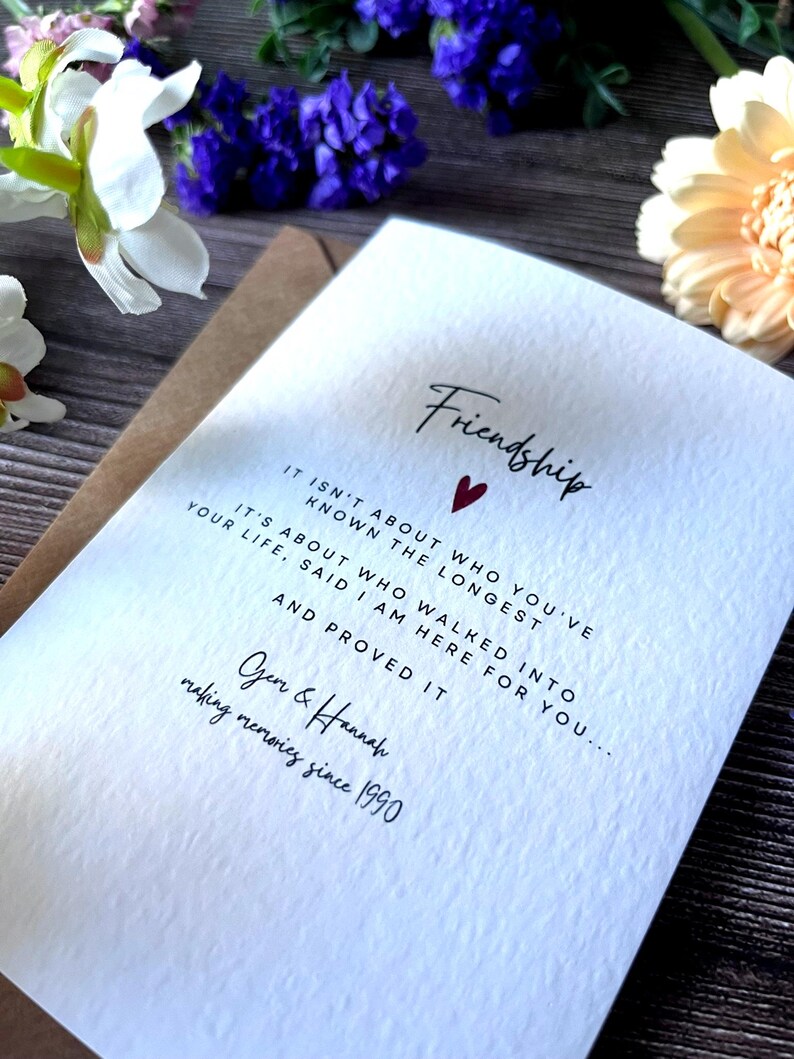 Friendship
IT ISN'T ABOUT WHO YOU'VE
KNOWN THE LONGEST
IT'S ABOUT WHO WALKED INTO
YOUR LIFE, SAID I AM HERE FOR YOU...
AND PROVED IT
Gem & Hannah
making memories since 1990